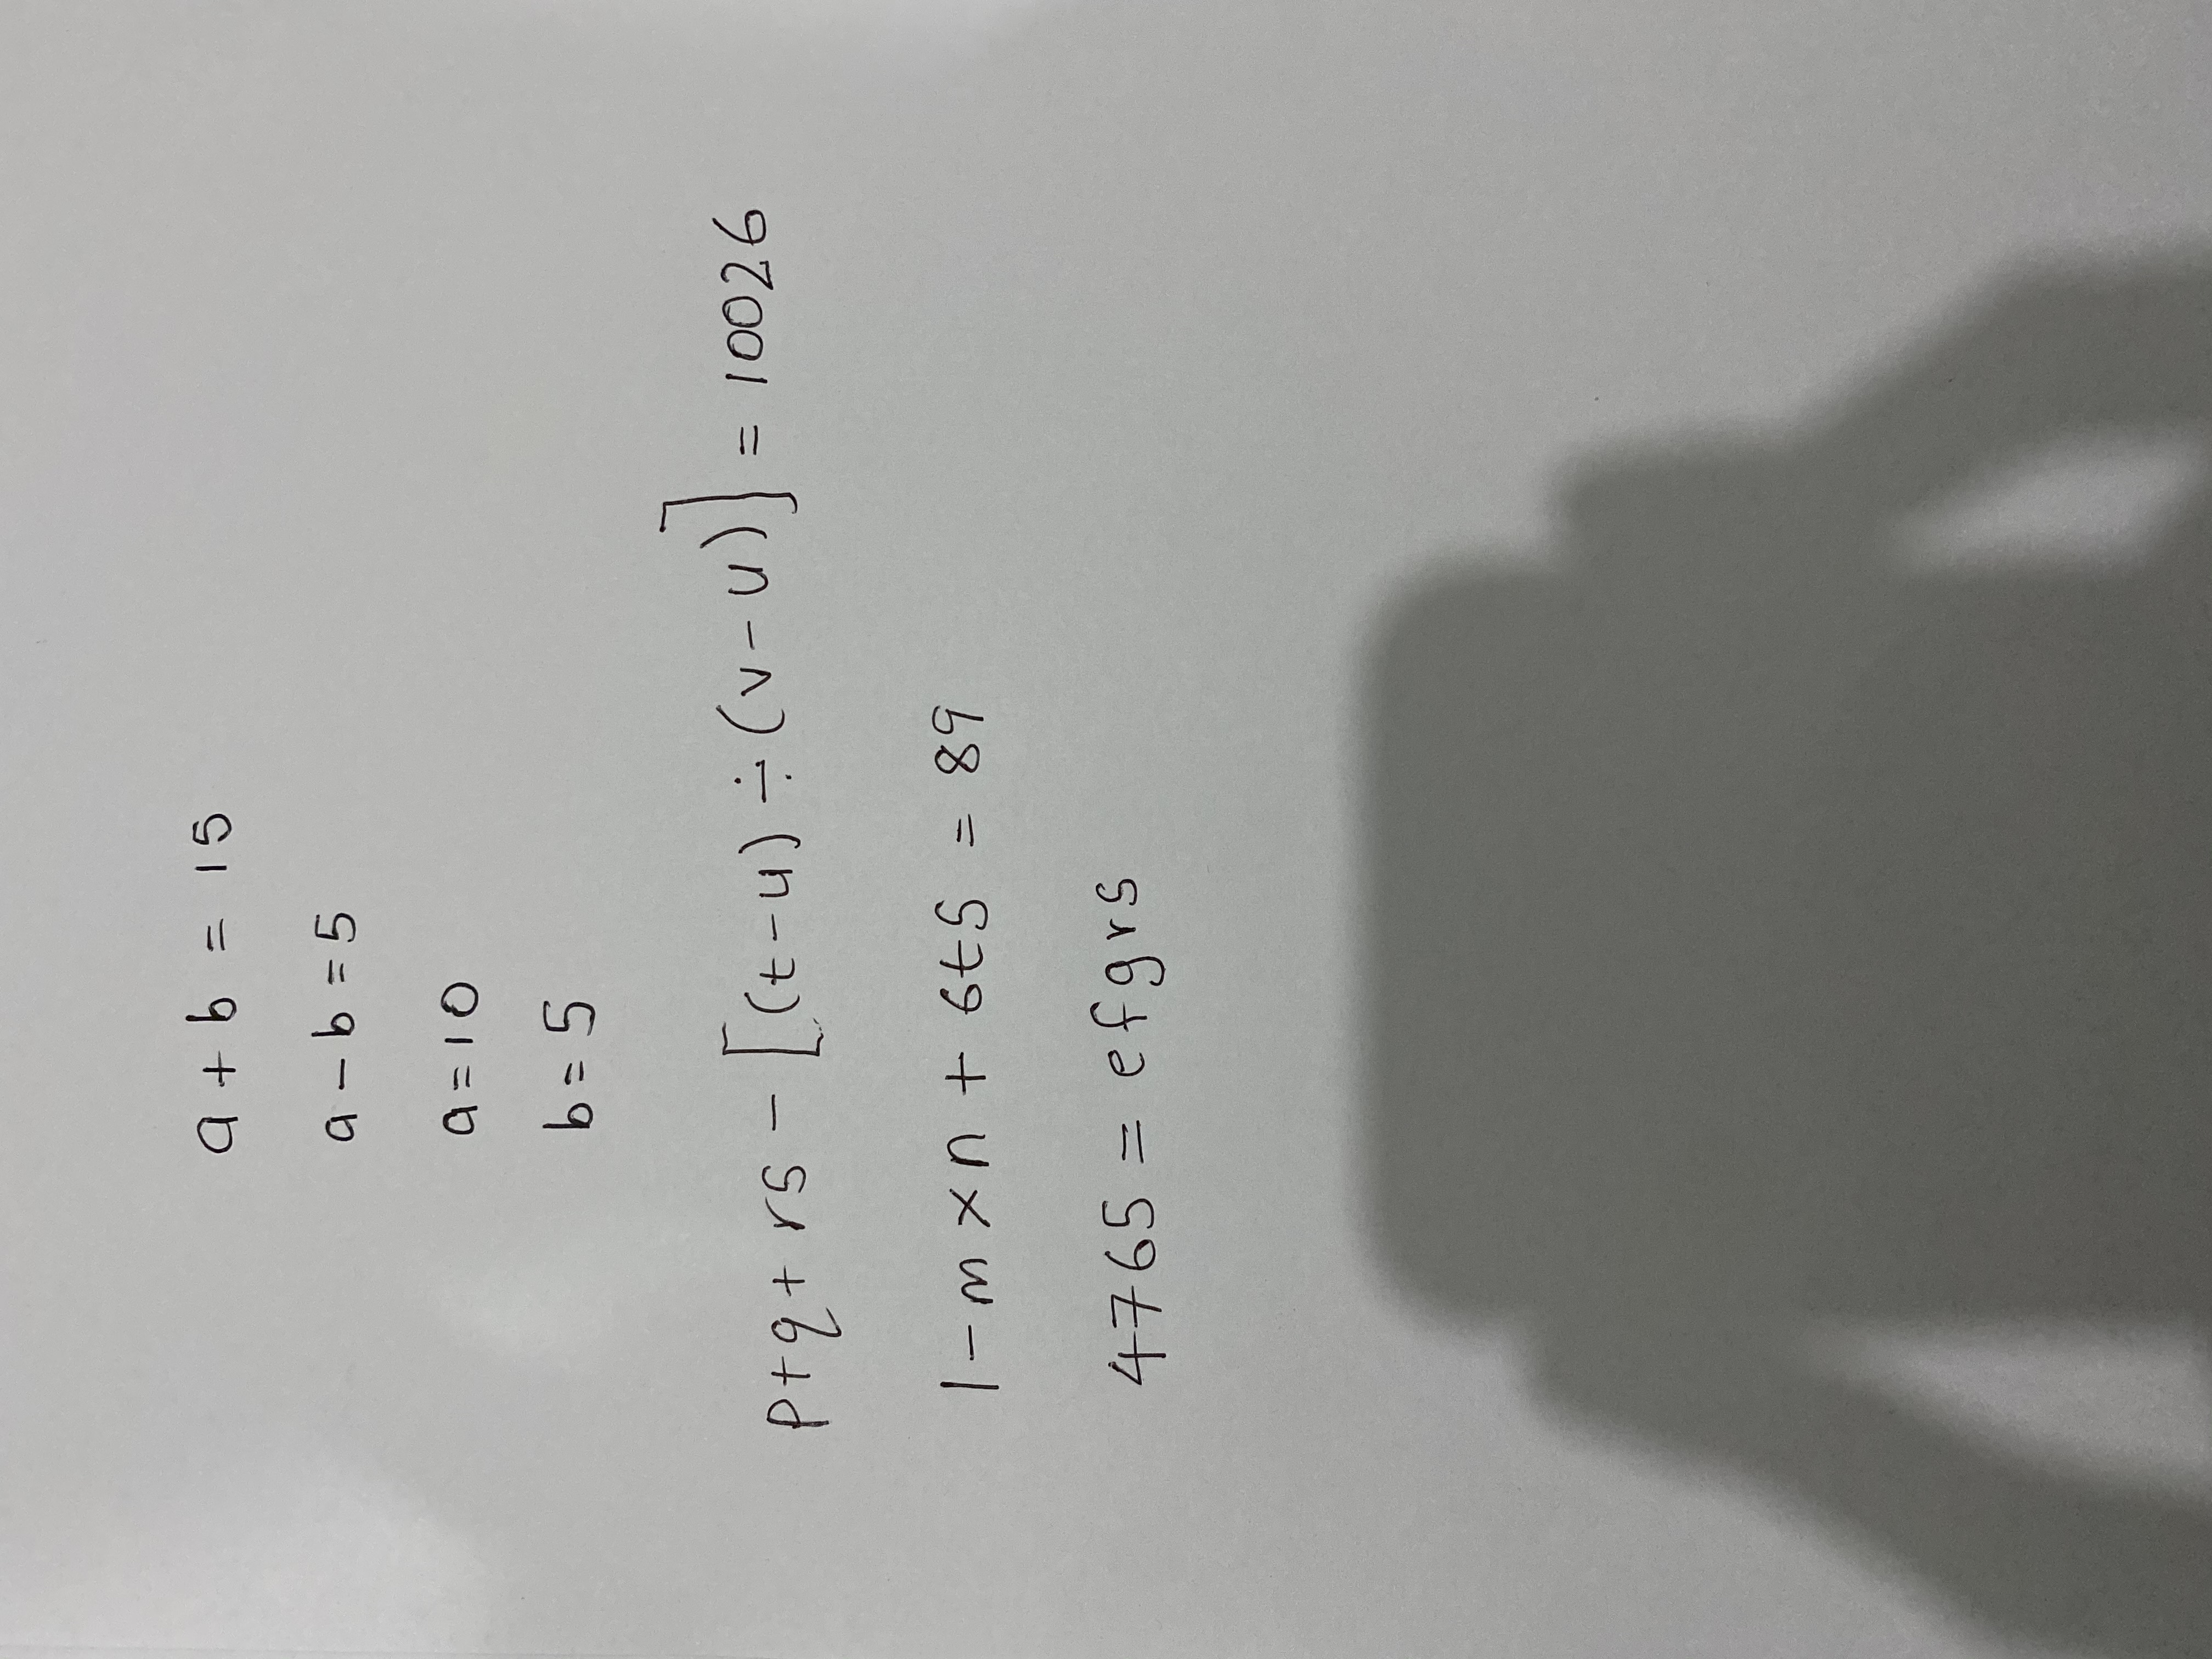 a + b = 15
a - b = 5
a = 10
b = 5
p + q + rs - [(t - u) ÷ (v - u)] = 10026
l - m × n + 6ts = 89
4765 = efgrs